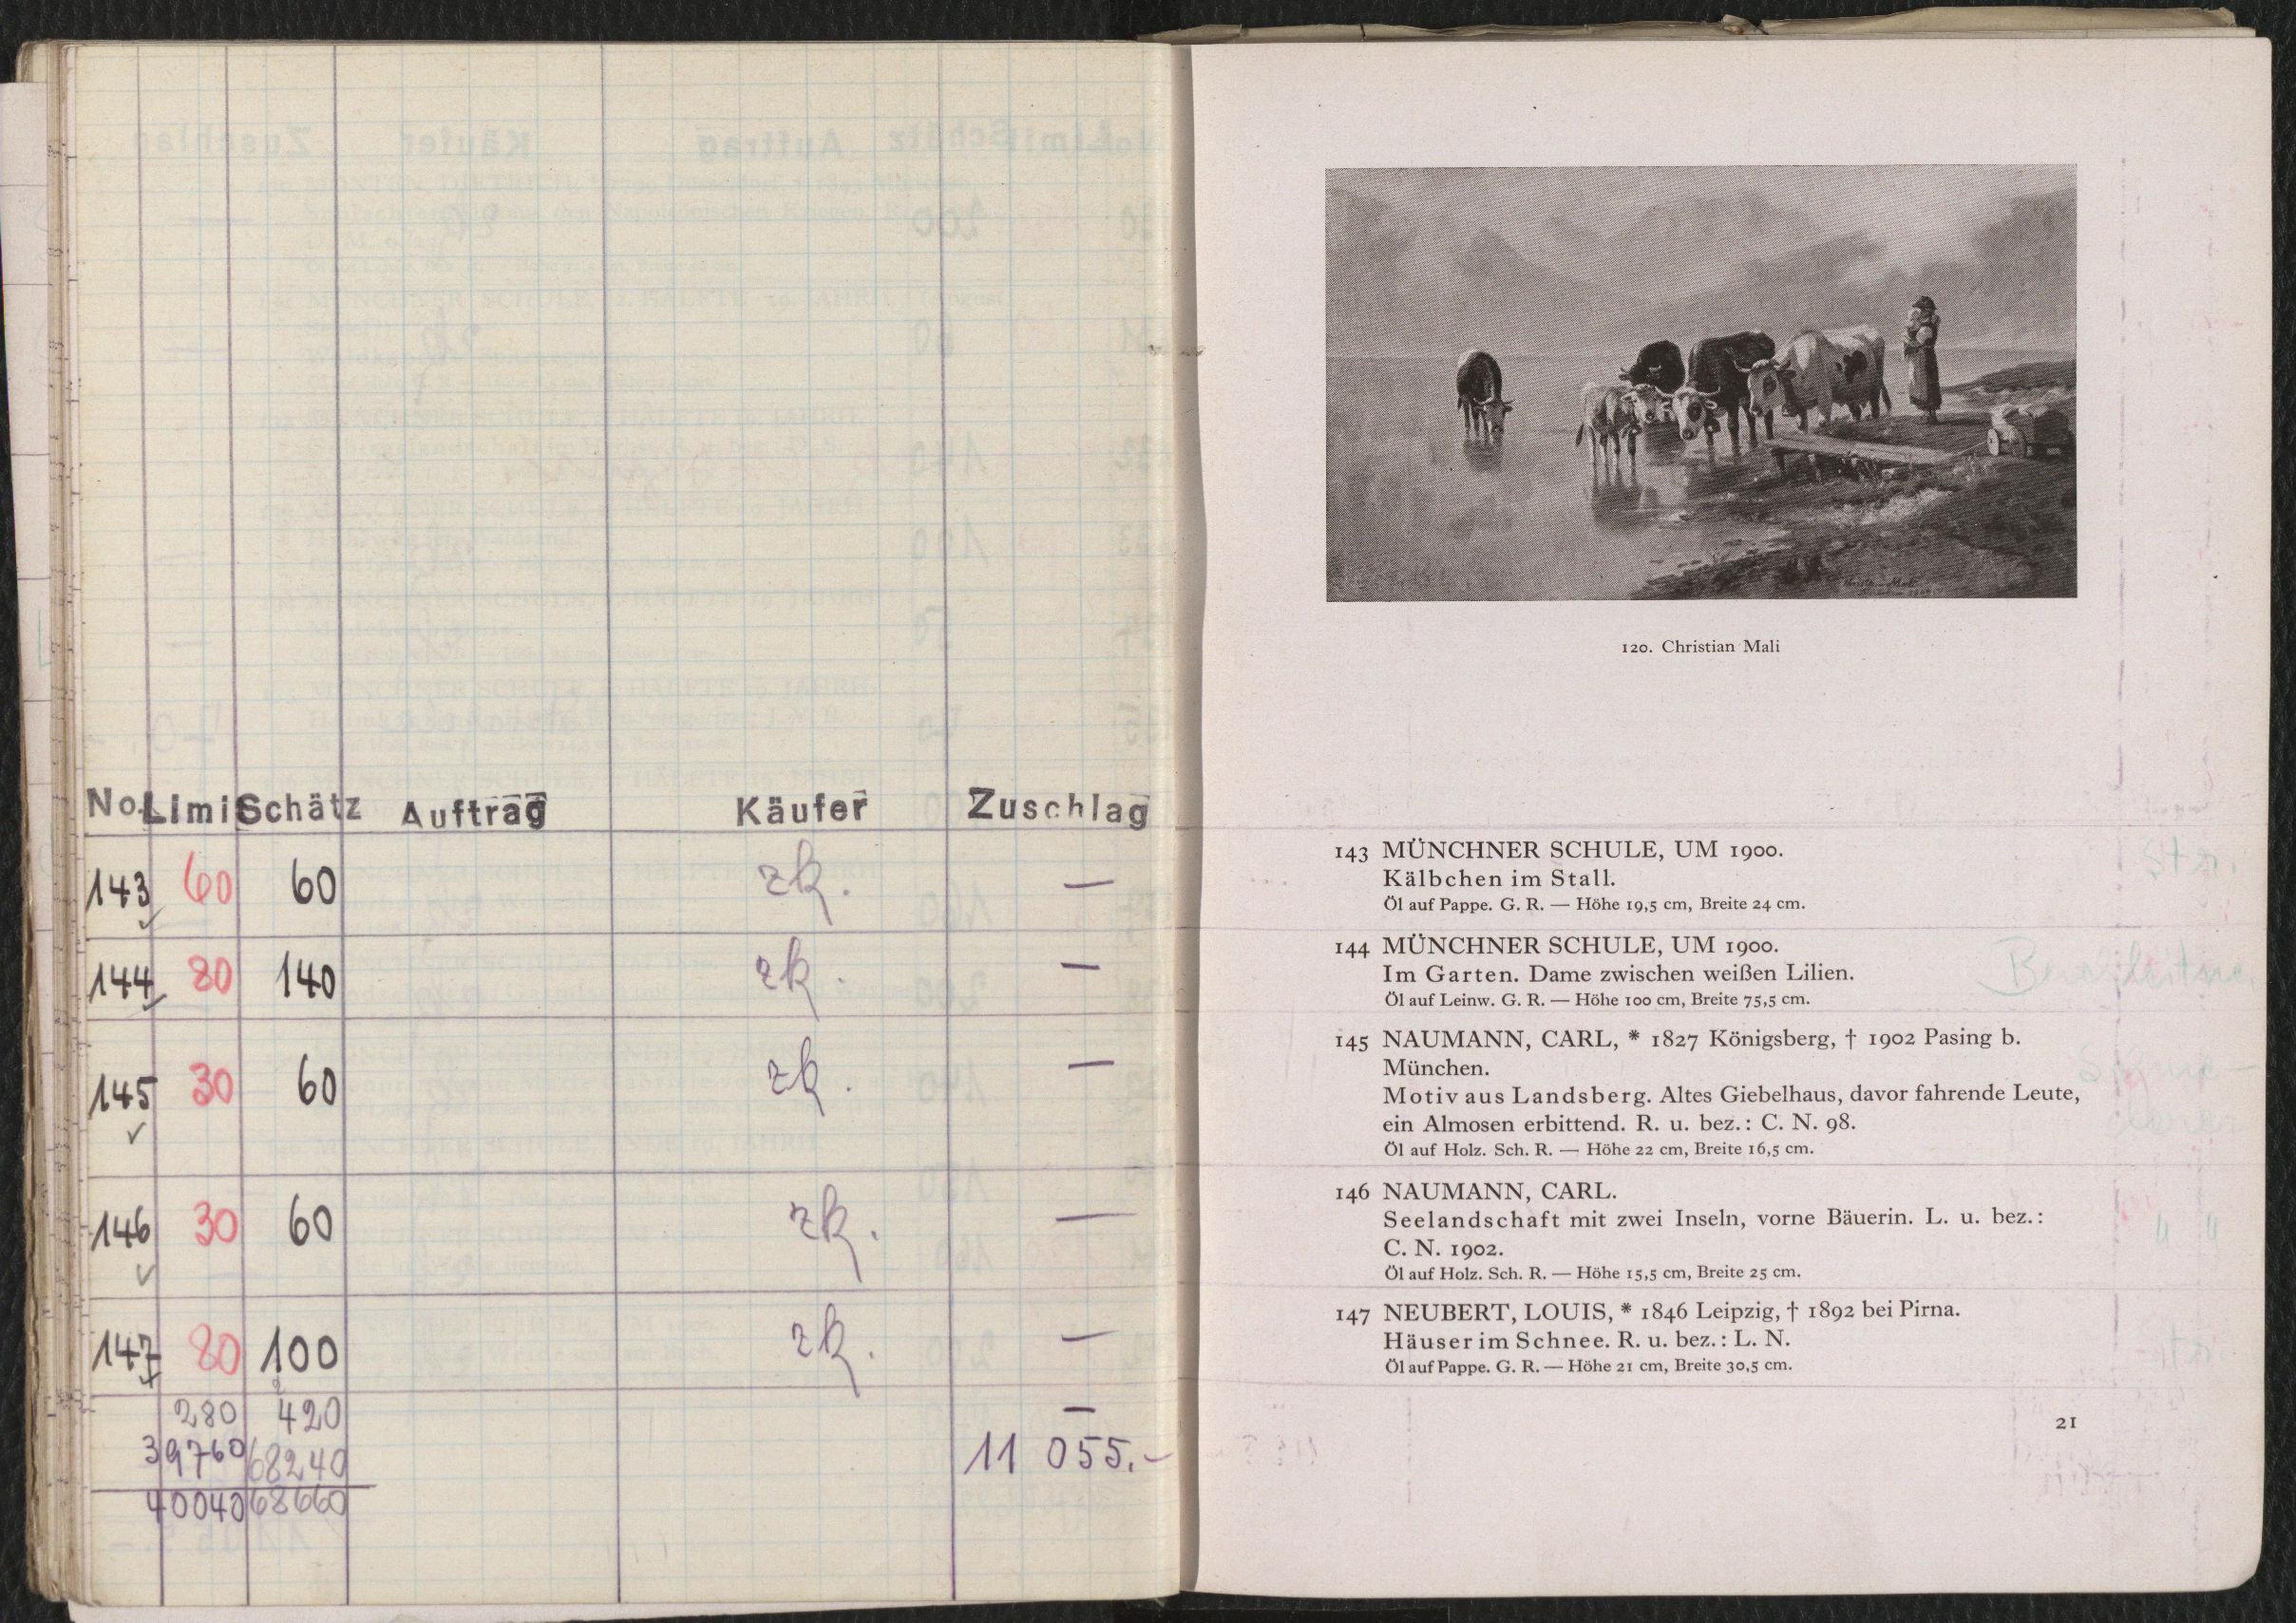 No. Limit Schätz Auftrag Käufer Zuschlag
143 60 60 zk. —
144 80 140 zk. —
145 30 60 zk. —
146 30 60 zk. —
147 80 100 zk. —
280 420 —
39760 68240 11 055.-
40040 68660
120. Christian Mali
143 MÜNCHNER SCHULE, UM 1900.
Kälbchen im Stall.
Öl auf Pappe. G. R. — Höhe 19,5 cm, Breite 24 cm.
144 MÜNCHNER SCHULE, UM 1900.
Im Garten. Dame zwischen weißen Lilien.
Öl auf Leinw. G. R. — Höhe 100 cm, Breite 75,5 cm.
145 NAUMANN, CARL, * 1827 Königsberg, † 1902 Pasing b.
München.
Motiv aus Landsberg. Altes Giebelhaus, davor fahrende Leute,
ein Almosen erbittend. R. u. bez.: C. N. 98.
Öl auf Holz. Sch. R. — Höhe 22 cm, Breite 16,5 cm.
146 NAUMANN, CARL.
Seelandschaft mit zwei Inseln, vorne Bäuerin. L. u. bez.:
C. N. 1902.
Öl auf Holz. Sch. R. — Höhe 15,5 cm, Breite 25 cm.
147 NEUBERT, LOUIS, * 1846 Leipzig, † 1892 bei Pirna.
Häuser im Schnee. R. u. bez.: L. N.
Öl auf Pappe. G. R. — Höhe 21 cm, Breite 30,5 cm.
21